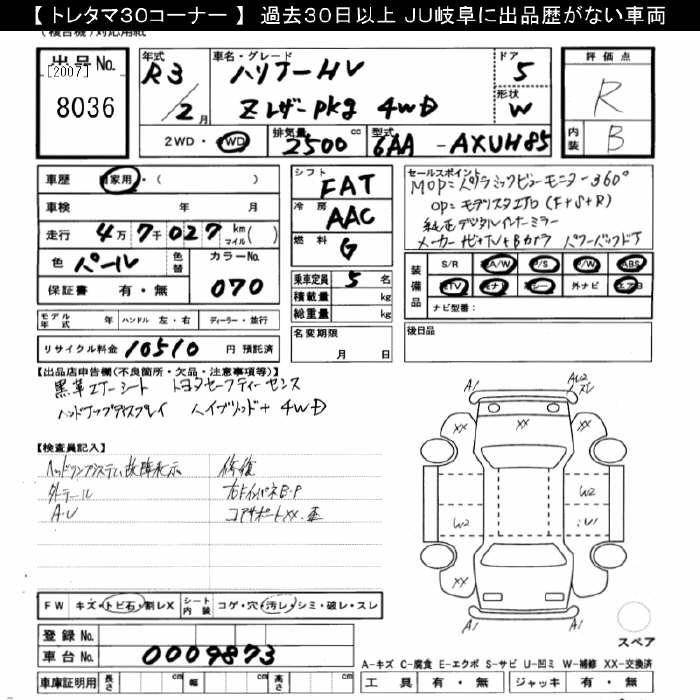 【トレタマ30コーナー】 過去30日以上 JU岐阜に出品歴がない車両
出品No.
[2007]
8036
年式
R3
2月
車名・グレード
ハリアーHV
Zレザーpkg 4WD
ドア
5
形状
W
2WD・4WD
排気量
2500 cc
型式
6AA - AXUH85
評価点
R
内装
B
車歴 自家用・( )
車検 年 月
走行 4万7千027 km マイル( )
色 パール 色替 カラーNo. 070
保証書 有・無
シフト
FAT
冷房
AAC
燃料
G
乗車定員 5 名
積載量 kg
総重量 kg
名変期限
月 日
セールスポイント
MOP=パノラミックビューモニター360°
OP=モデリスタエアロ(F+S+R)
純正デジタルインナーミラー
メーカーナビ+TV+Bカメラ パワーバックドア
装備品
S/R A/W P/S P/W ABS
TV ナビ 革シート 外ナビ エアB
ナビ型番:
後日品
モデル年式 年 ハンドル 左・右 ディーラー・並行
リサイクル料金 10510 円 預託済
【出品店申告欄(不良箇所・欠品・注意事項等)】
黒革エアーシート トヨタセーフティーセンス
ハイブリッド+4WD
【検査員記入】
修復
外テール
A・U
コアサポートXX・歪
FW キズ・トビ石・割レX
シート内装 コゲ・穴・汚レ・シミ・破レ・スレ
登録No.
車台No. 0009873
車庫証明用 長さ cm 幅 cm 高さ cm
A1
A1
XX
XX
W2
W2
XX
スペア
A-キズ C-腐食 E-エクボ S-サビ U-凹ミ W-補修 XX-交換済
工具 有・無 ジャッキ 有・無